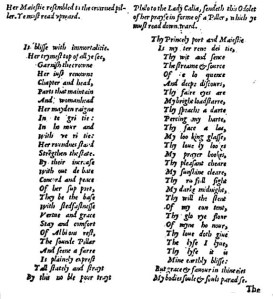 Her Maiestie resembled to the crowned pil-
ler. Ye must read vpward.
Is blisse with immortalitie.
Her trymest top of all ye see,
Garnish the crowne
Her iust renowne
Chapter and head,
Parts that maintain
And womanhead
Her mayden raigne
In te gri tie:
In ho nour and
with ve ri tie:
Her roundnes stand
Strēgthen the state.
By their increase
With out de bate
Concord and peace
Of her sup port,
They be the base
with stedfastnesse
Vertue and grace
Stay and comfort
Of Albions rest,
The sounde Pillar
And seene a farre
Is plainely exprest
Tall stately and strayt
By this no ble pour trayt
Philo to the Lady Calia, sendeth this Odolet
of her prayse in forme of a Piller, which ye
must read downward.
Thy Princely port and Maiestie
Is my ter rene dei tie,
Thy wit and sence
The streame & source
Of e lo quence
And deepe discours,
Thy faire eyes are
My bright loadstarre,
Thy speache a darte
Percing my harte,
Thy face a las,
My loo king glasse,
Thy loue ly lookes
My prayer bookes,
Thy pleasant cheare
My sunshine cleare,
Thy ru full sight
My darke midnight,
Thy will the stent
Of my con tent,
Thy glo rye flour
Of myne ho nour,
Thy loue doth giue
The lyfe I lyue,
Thy lyfe it is
Mine earthly blisse:
But grace & fauour in thine eies
My bodies soule & souls paradise.
The